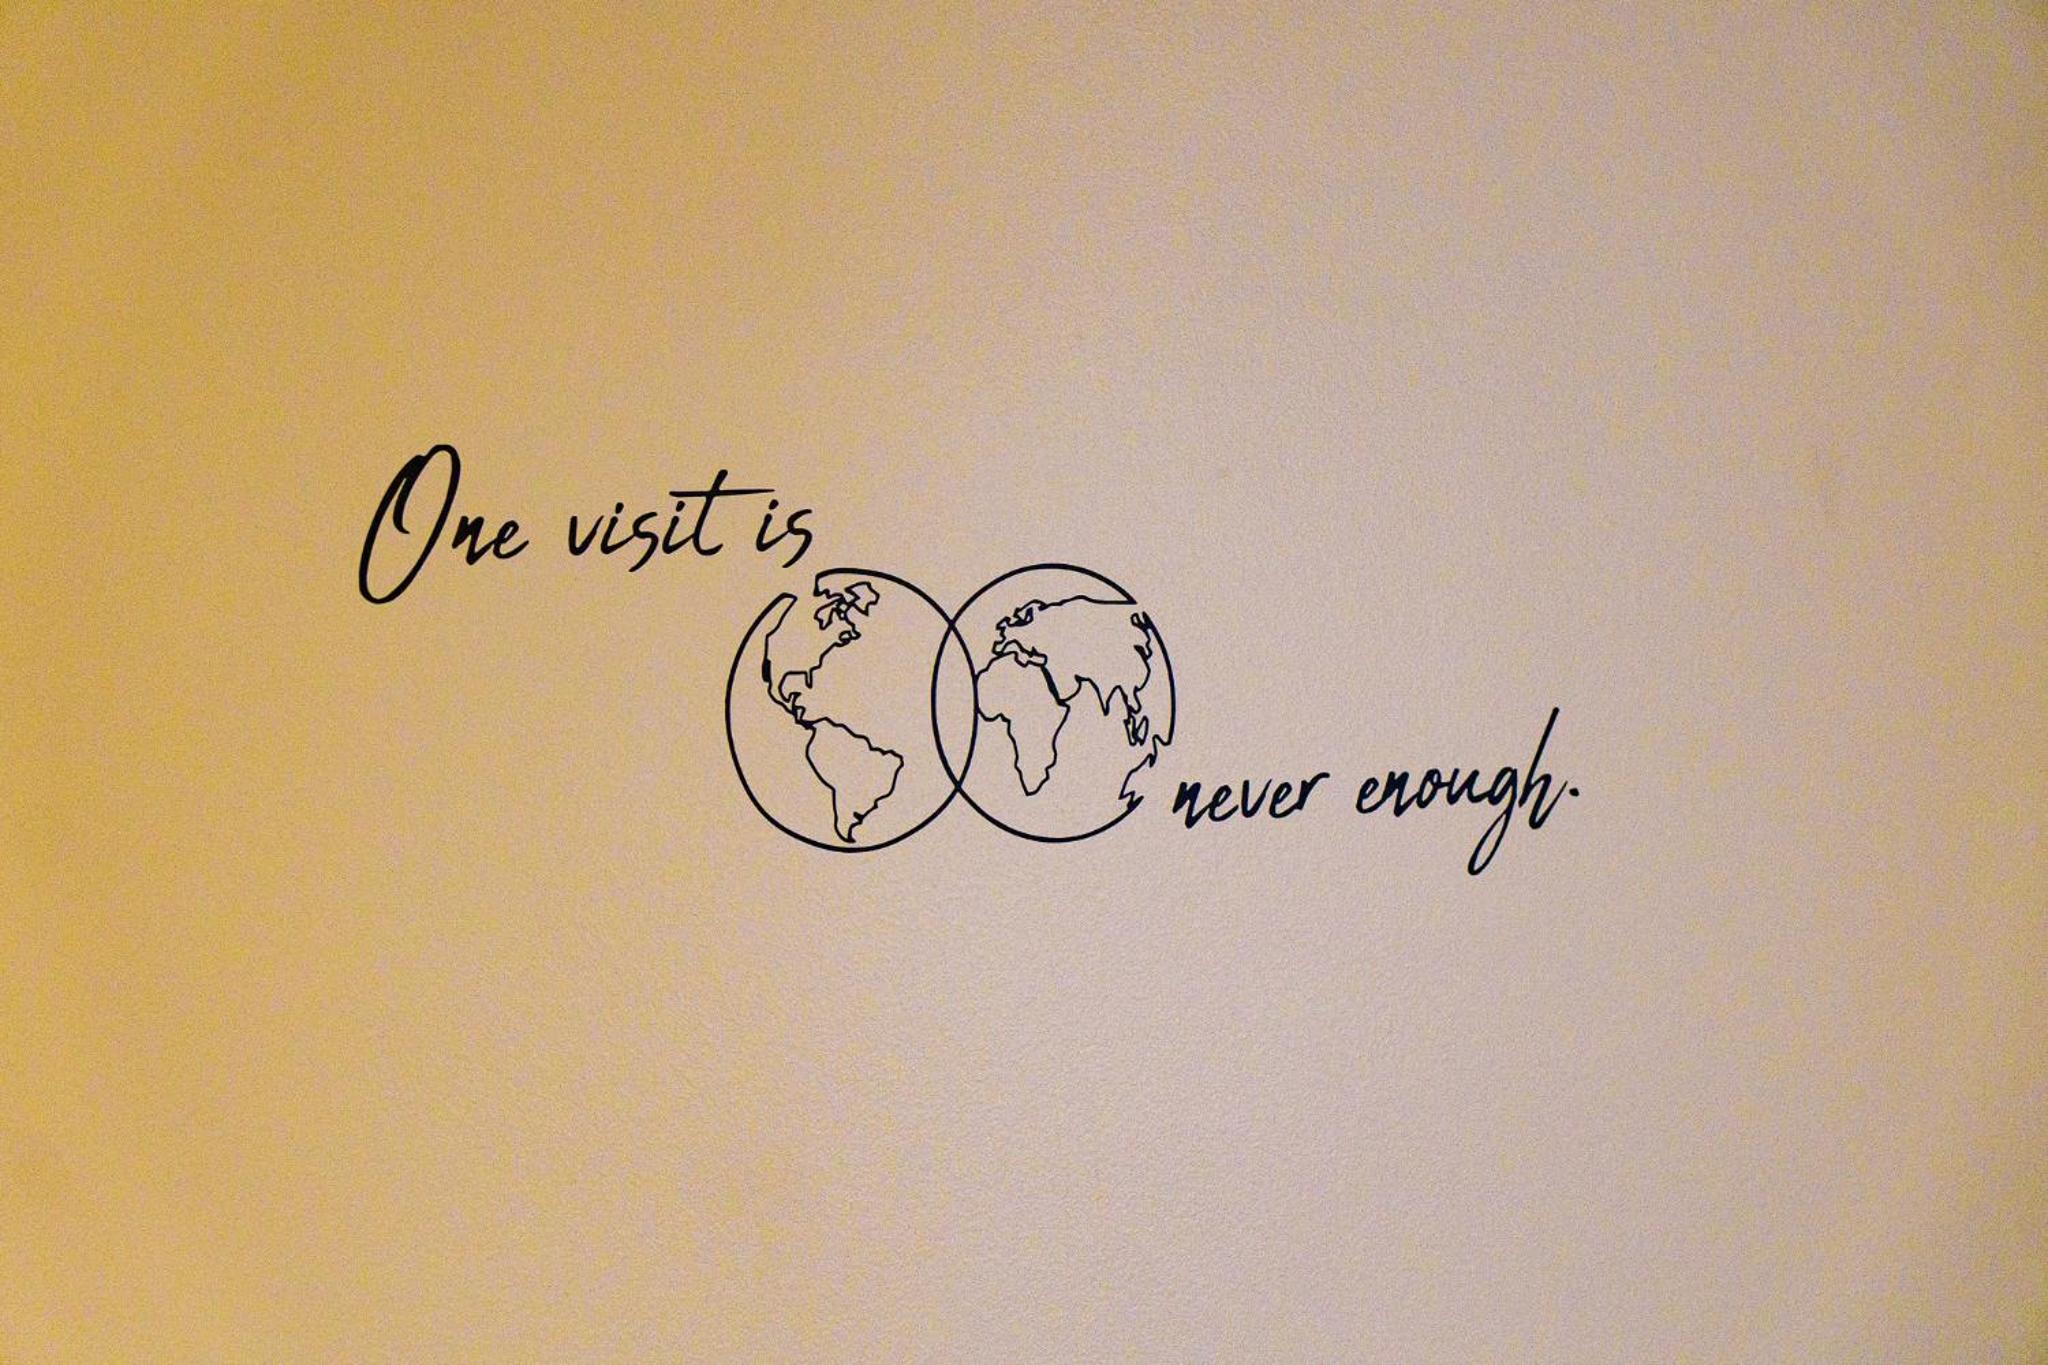 One visit is
never enough.